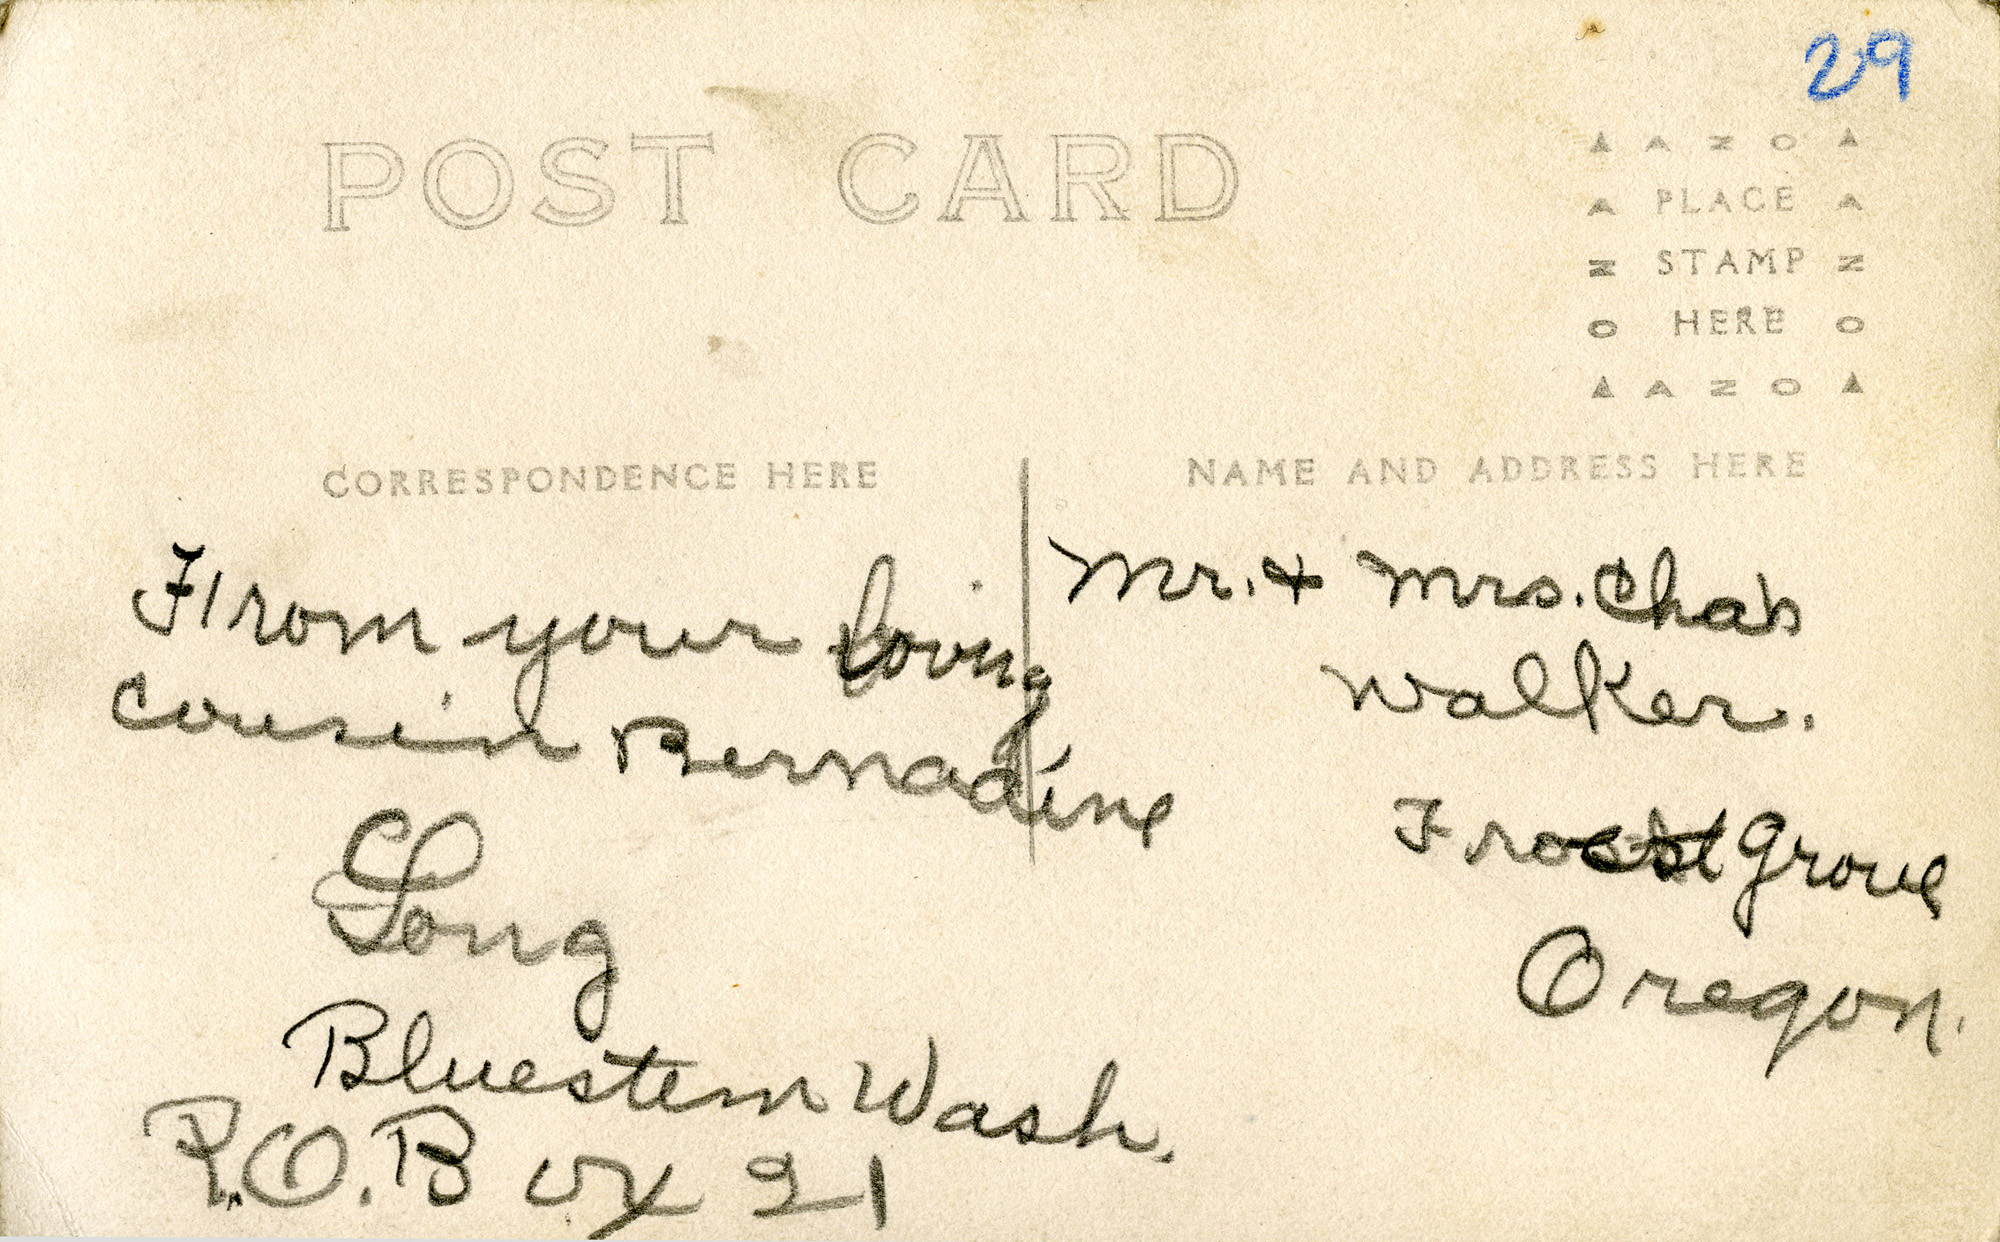 29
POST CARD
▲ A Z O ▲
A PLACE A
N STAMP N
O HERE O
▲ A Z O ▲
CORRESPONDENCE HERE
NAME AND ADDRESS HERE
From your loving
cousin Bernadine
Long
Bluestem Wash.
P.O. Box 21
Mr. & Mrs. Chas
Walker.
Frost Grove
Oregon.